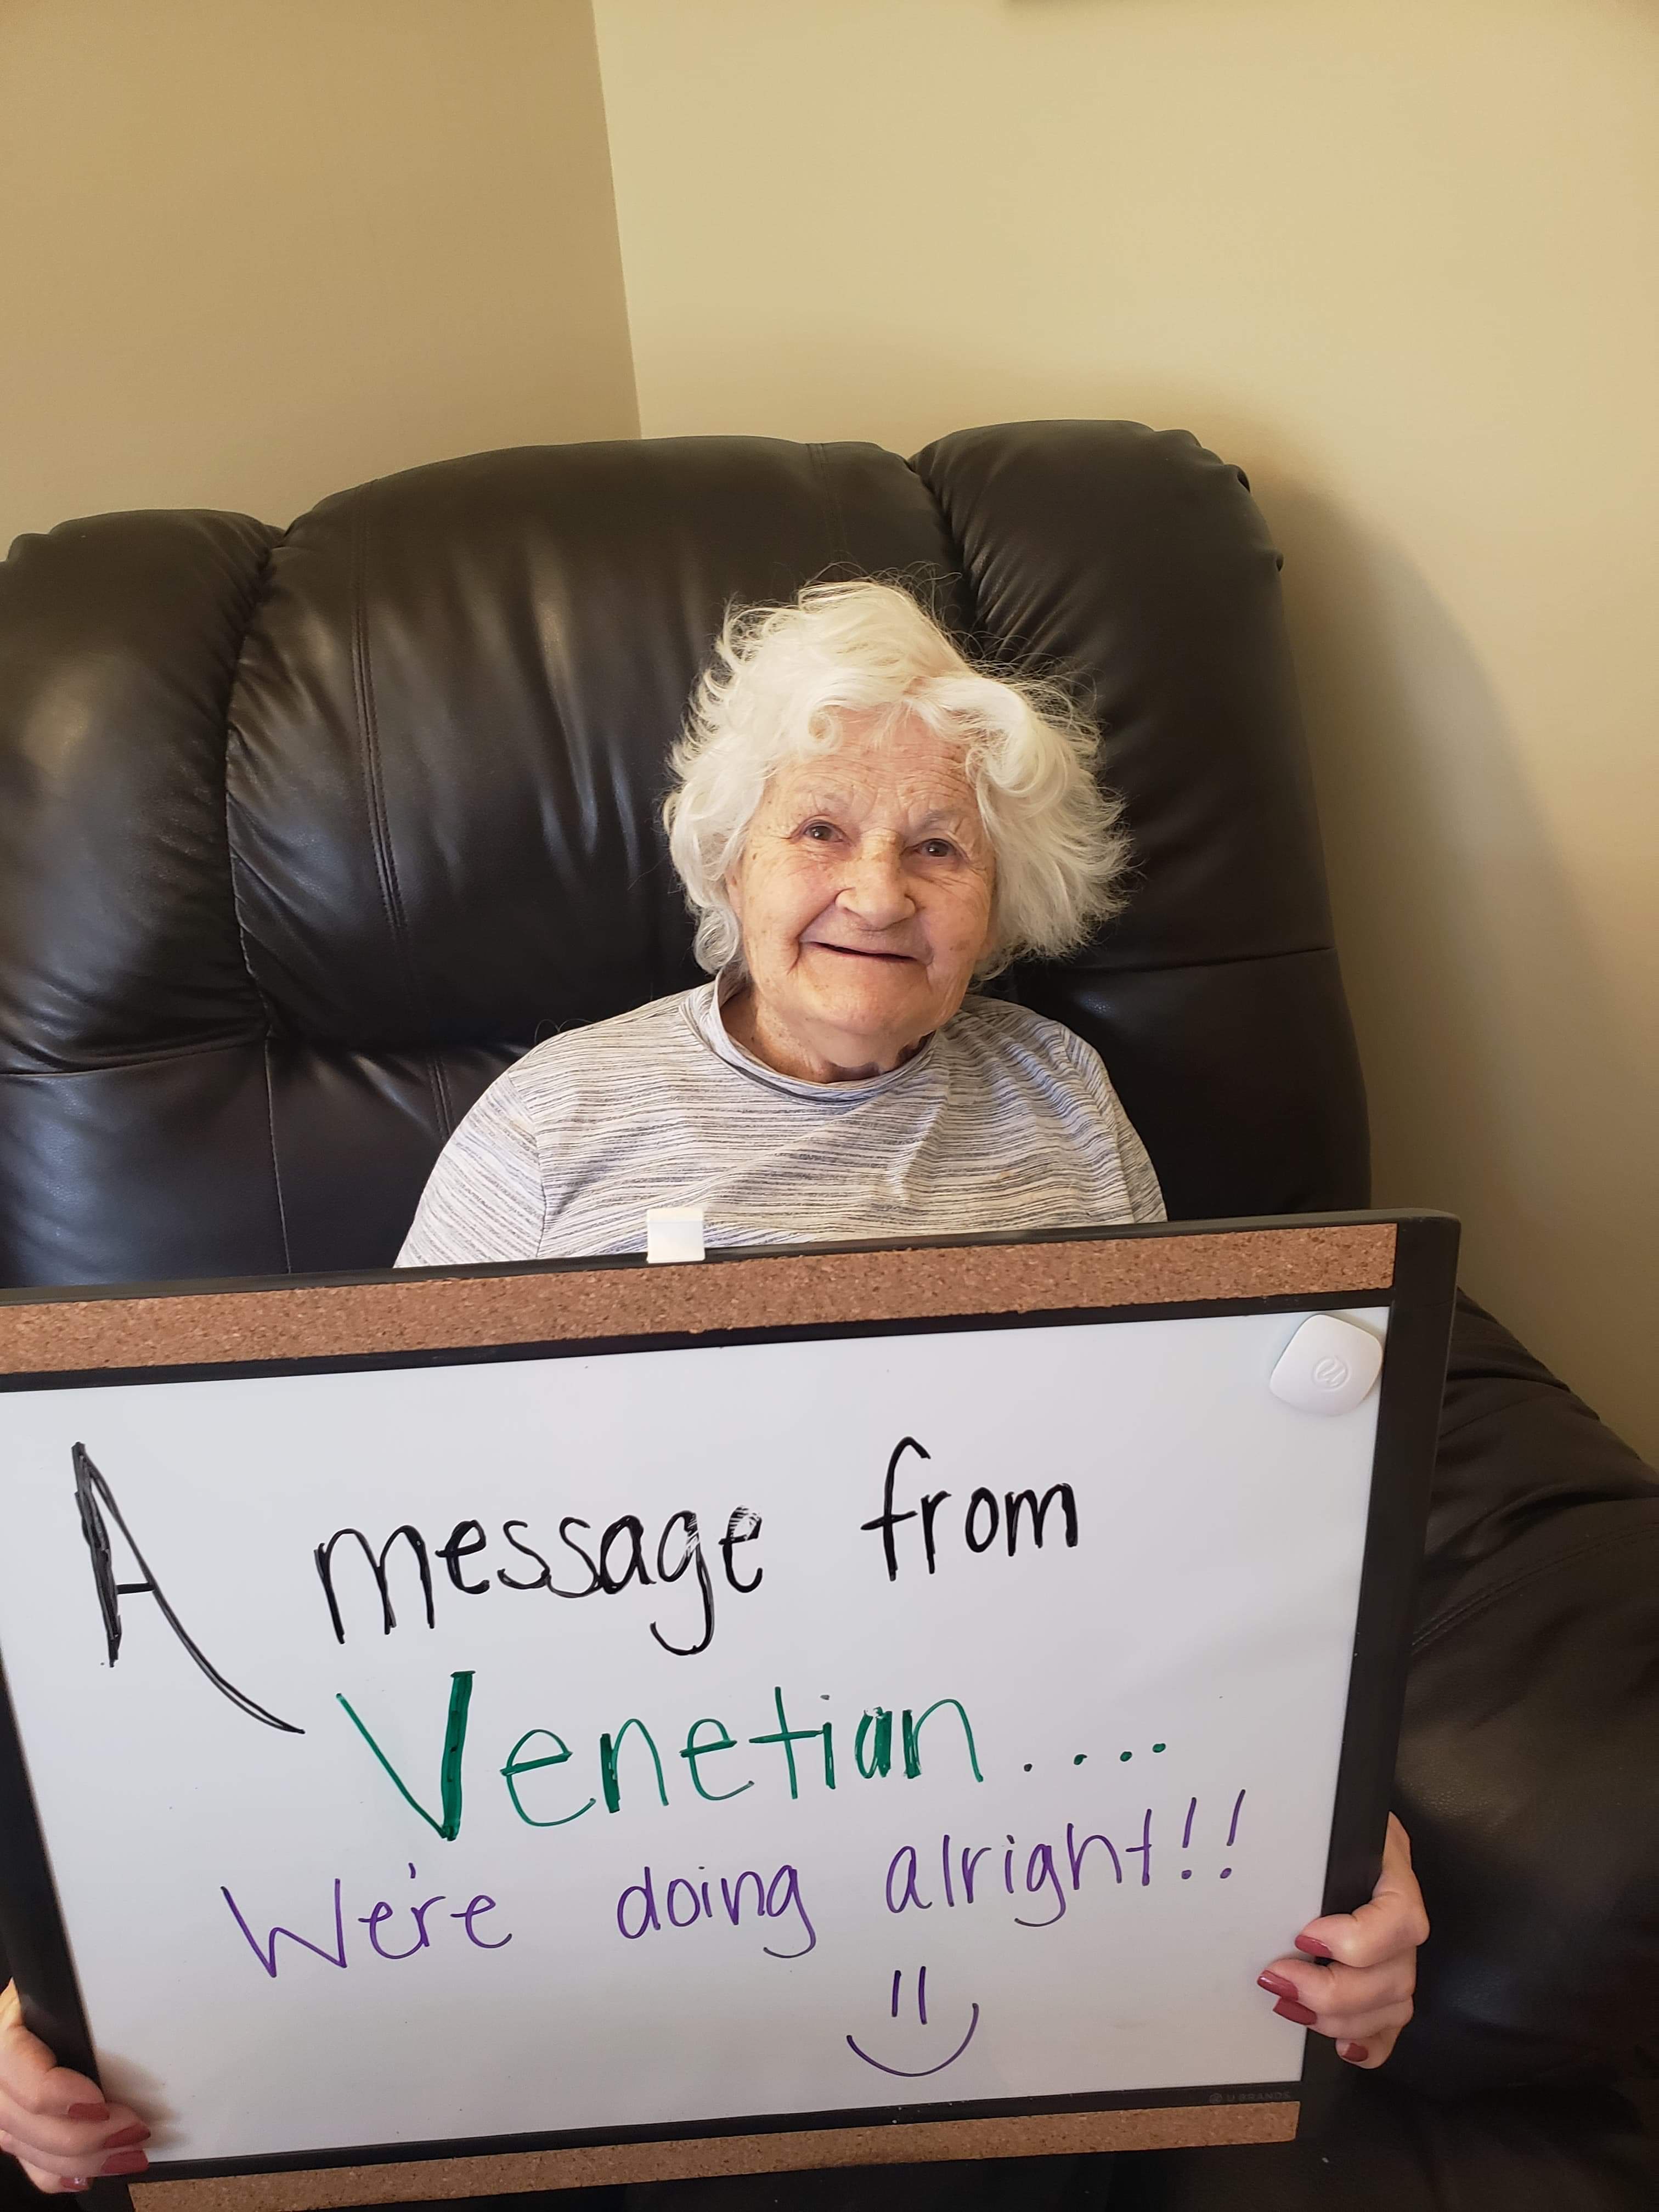 A message from
Venetian....
We're doing alright!!
U BRANDS